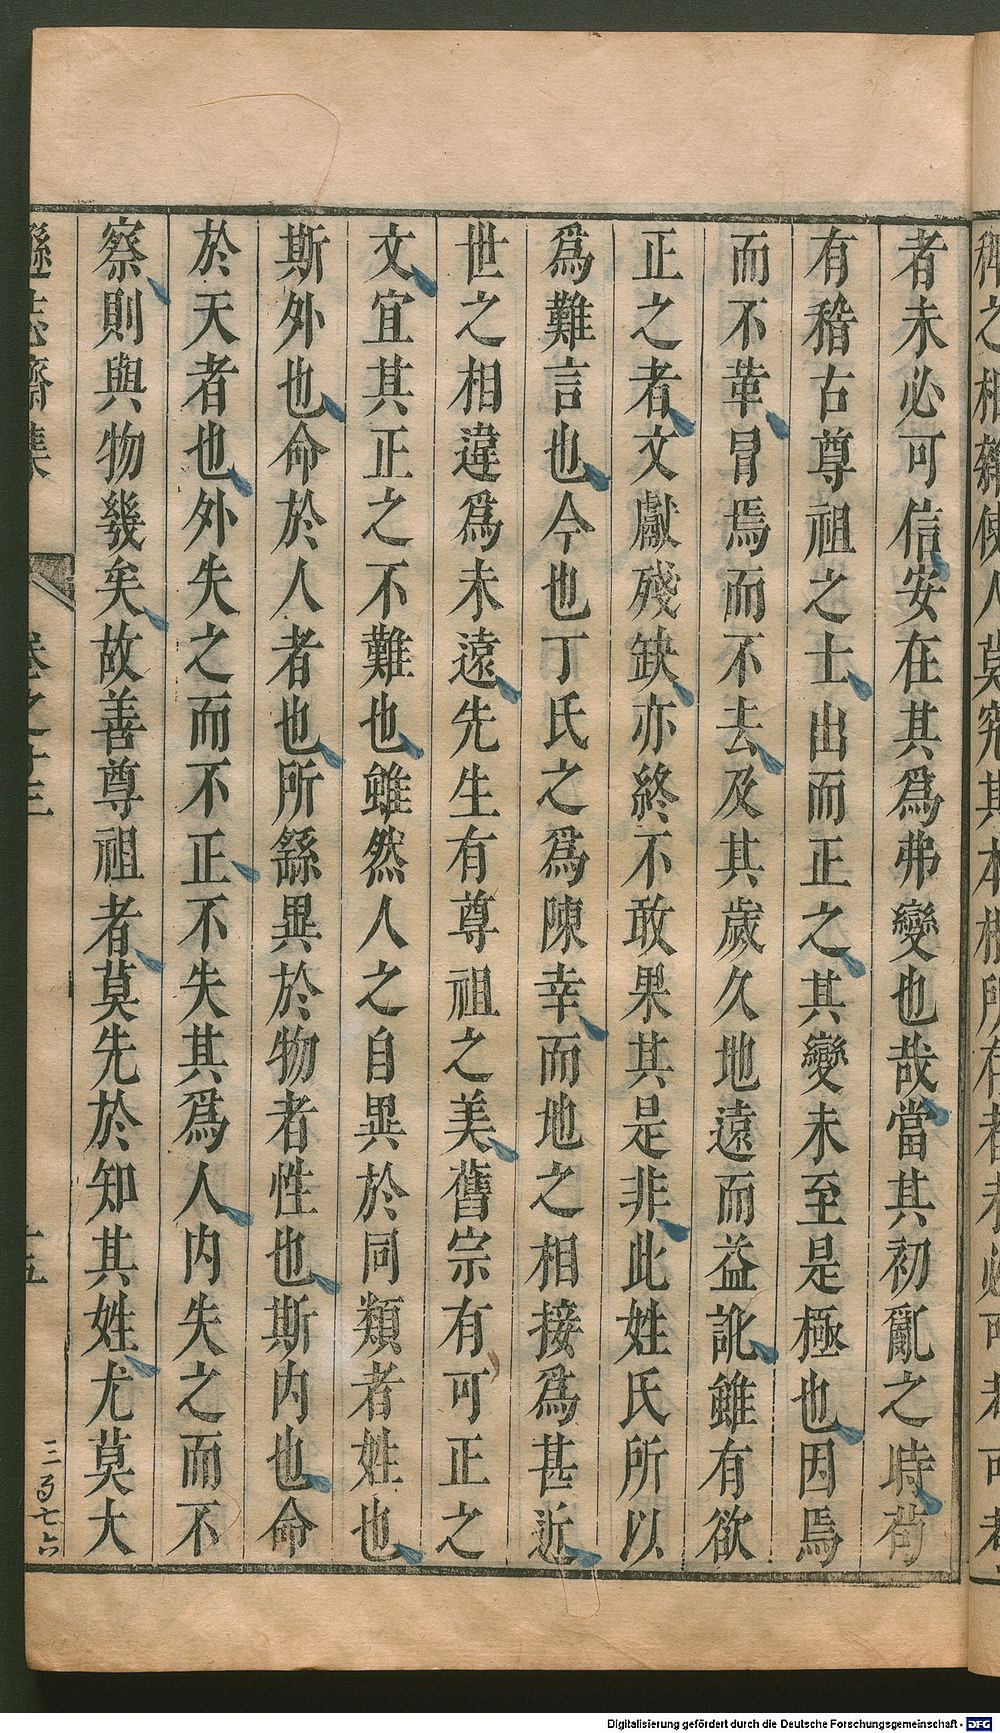 者未必可信安在其爲弗變也哉當其初亂之時苟
有稽古尊祖之士出而正之其變未至是極也因焉
而不革冒焉而不去及其歲久地遠而益訛雖有欲
正之者文獻殘缺亦終不敢果其是非此姓氏所以
爲難言也今也丁氏之爲陳幸而地之相接爲甚近
世之相違爲未遠先生有尊祖之美舊宗有可正之
文宜其正之不難也雖然人之自異於同類者姓也
斯外也命於人者也所繇異於物者性也斯内也命
於天者也外失之而不正不失其爲人内失之而不
察則與物幾矣故善尊祖者莫先於知其姓尤莫大
遜志齋集 卷之十三 十五
三百七六
Digitalisierung gefördert durch die Deutsche Forschungsgemeinschaft - DFG